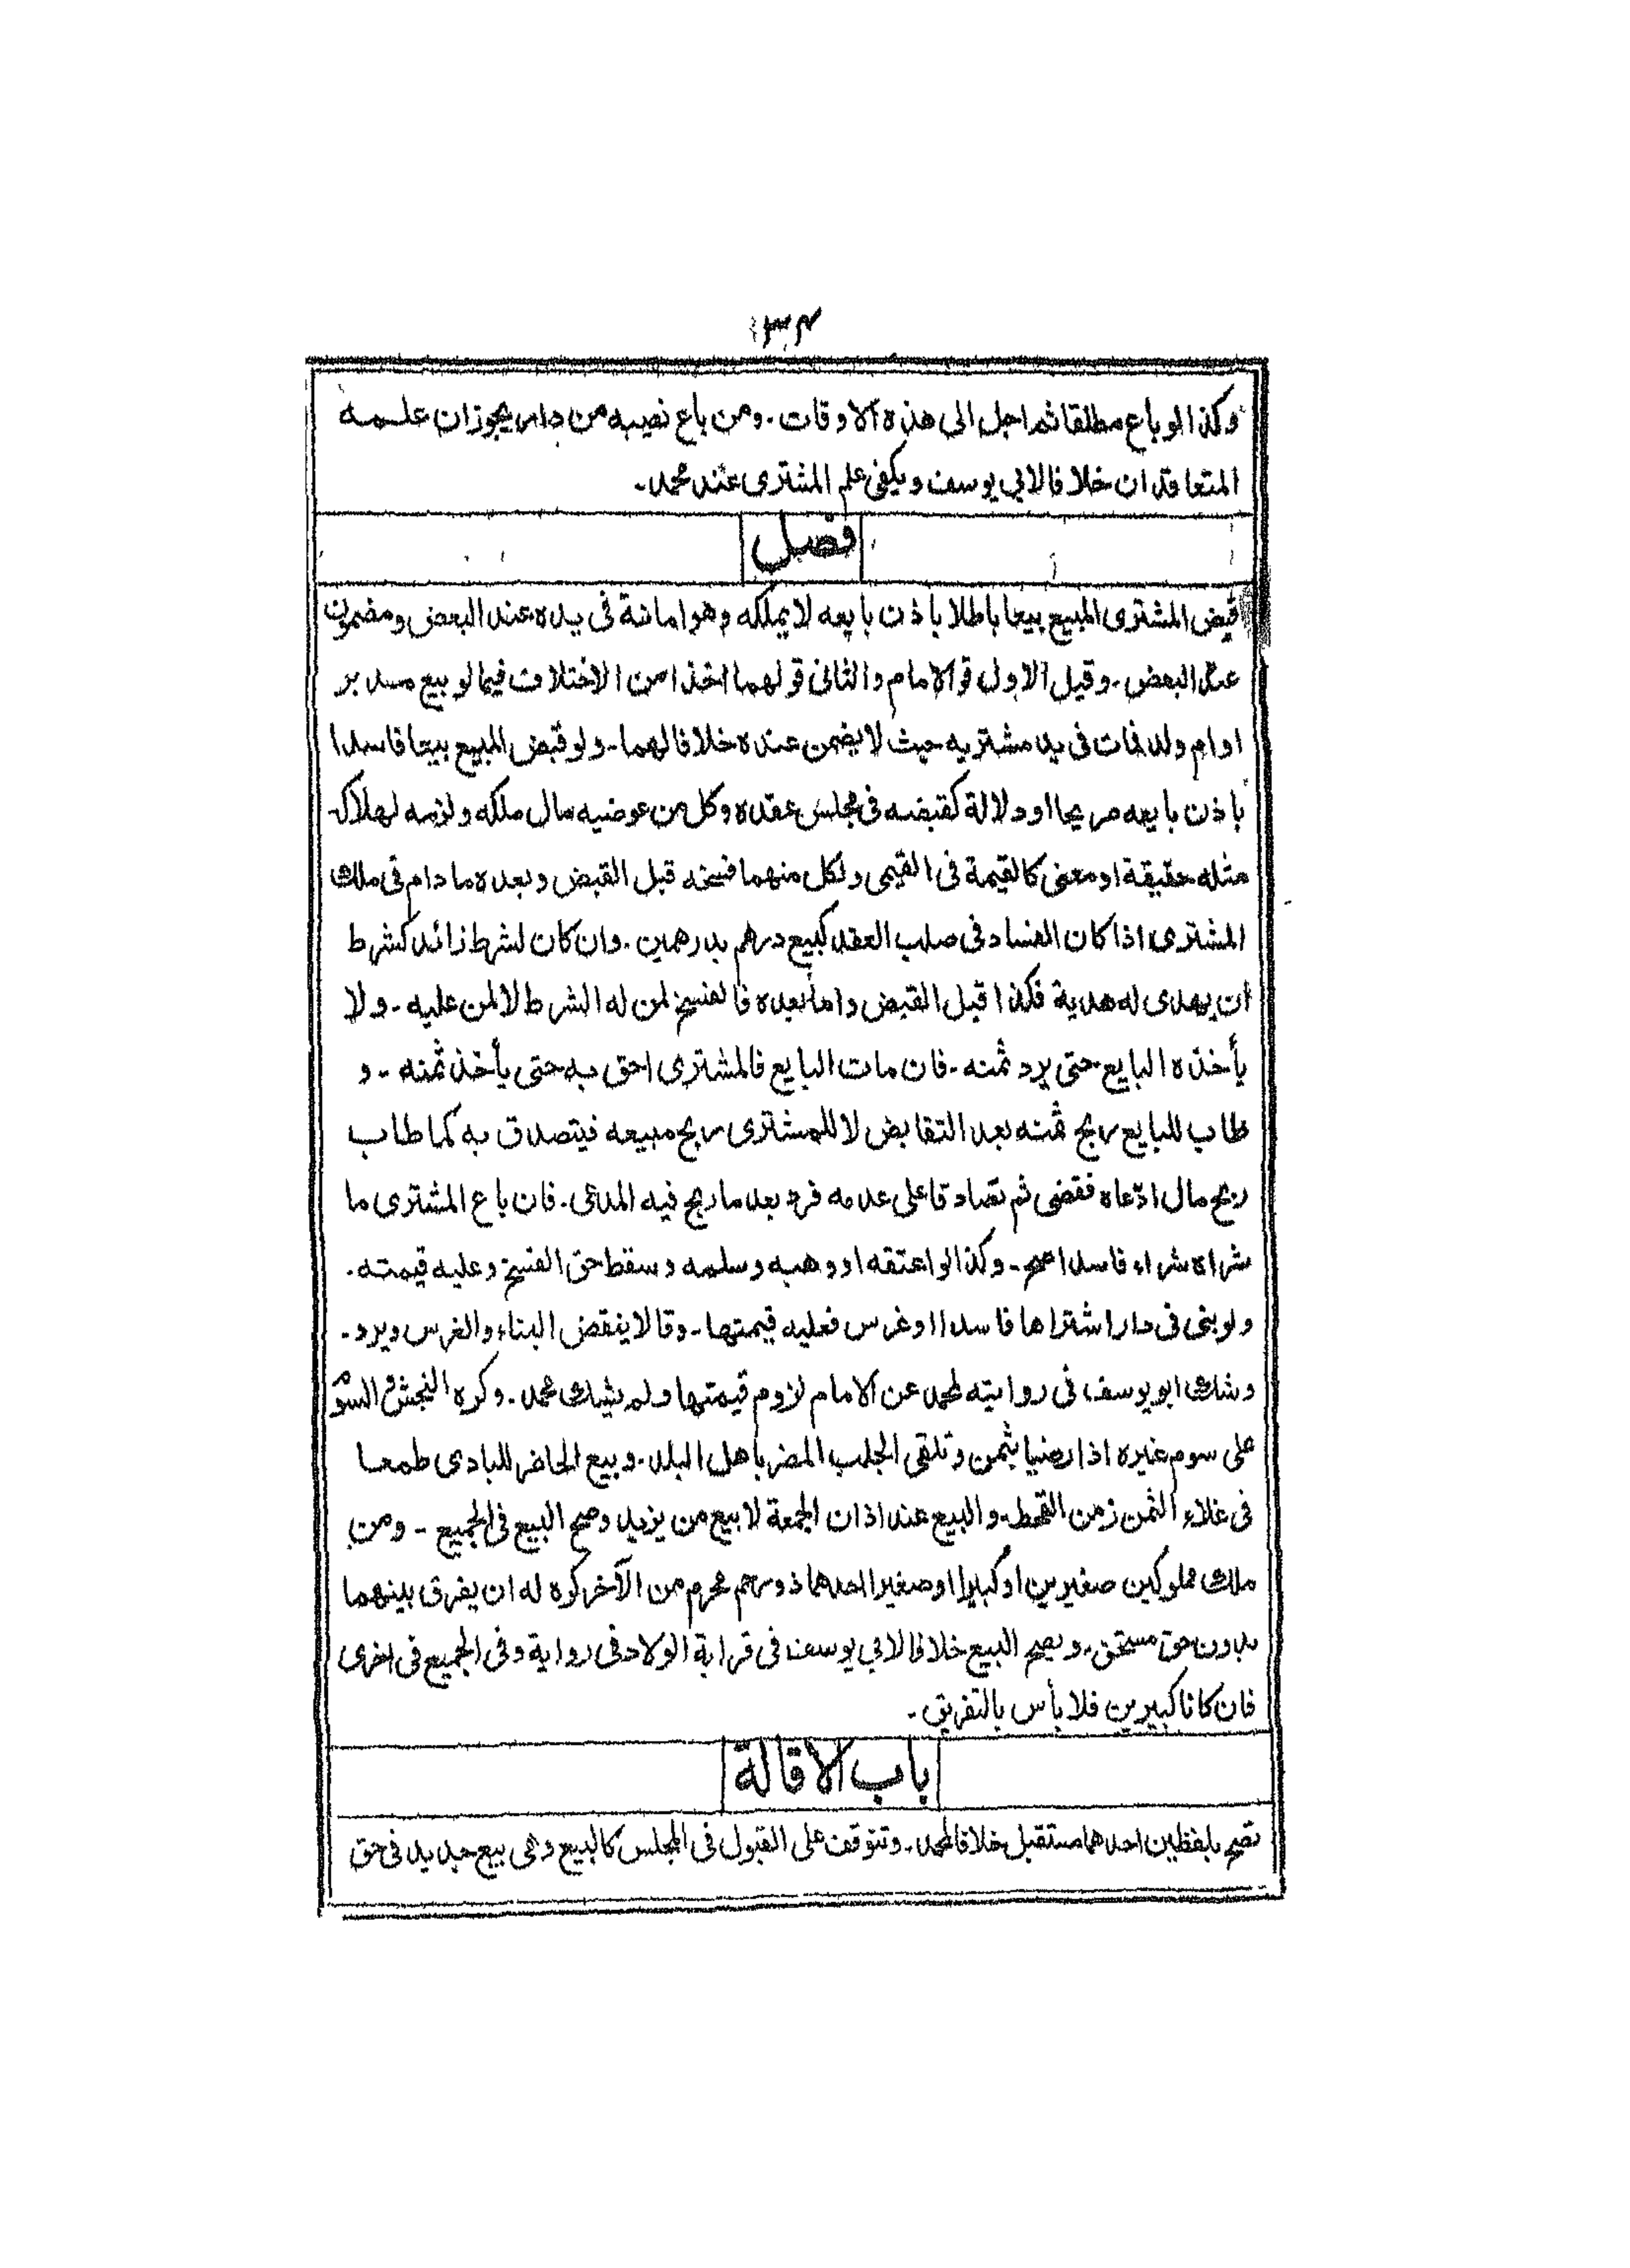 ١٣٤
وكذا لو باع مطلقا ثم اجل الى هذه الاوقات ۔ ومن باع نصيبه من دار يجوز ان علمه
المتعاقدان خلافا لابي يوسف ويكفى علم المشترى عند محمد ۔
فصل
قبض المشترى المبيع بيعا باطلا باذن بايعه لا يملكه وهو امانة فى يده عند البعض ومضمون
عند البعض ۔ وقيل الاول قول الامام والثانى قولهما اخذا من الاختلاف فيما لو بيع مدبر
او ام ولد فمات فى يد مشتريه حيث لا يضمن عنده خلافا لهما ۔ ولو قبض المبيع بيعا فاسدا
باذن بايعه صريحا او دلالة كقبضه فى مجلس عقده وكل من عوضيه مال ملكه ولزمه لهلاكه
مثله حقيقة او معنى كالقيمة فى القيمى ولكل منهما فسخه قبل القبض وبعده ما دام فى ملك
المشترى اذا كان الفساد فى صلب العقد كبيع درهم بدرهمين ۔ وان كان لشرط زائد كشرط
ان يهدى له هدية فكذا قبل القبض واما بعده فالفسخ لمن له الشرط لا لمن عليه ۔ ولا
يأخذه البايع حتى يرد ثمنه ۔ فان مات البايع فالمشترى احق به حتى يأخذ ثمنه ۔ و
طاب للبايع ربح ثمنه بعد التقابض لا للمشترى ربح مبيعه فيتصدق به كما طاب
ربح مال ادّعاه فقضى ثم تصادقا على عدمه فرد بعد ما ربح فيه المدعى ۔ فان باع المشترى ما
شراه شراء فاسدا صح ۔ وكذا لو اعتقه او وهبه وسلمه وسقط حق الفسخ وعليه قيمته ۔
ولو بنى فى دار اشتراها فاسدا او غرس فعليه قيمتها ۔ وقالا ينقض البناء والغرس ويرد ۔
وشك ابو يوسف فى روايته لمحمد عن الامام لزوم قيمتها ولم يشك محمد ۔ وكره النجش والسوم
على سوم غيره اذا رضيا بثمن وتلقى الجلب المضر باهل البلد ۔ وبيع الحاضر للبادى طمعا
فى غلاء الثمن زمن القحط ۔ والبيع عند اذان الجمعة لا بيع من يزيد وصح البيع فى الجميع ۔ ومن
ملك مملوكين صغيرين او كبيرا وصغيرا احدهما ذو رحم محرم من الآخر كره له ان يفرق بينهما
بدون حق مستحق ۔ ويصح البيع خلافا لابي يوسف فى قرابة الولاد فى رواية وفى الجميع فى اخرى
فان كانا كبيرين فلا بأس بالتفريق ۔
باب الاقالة
تصح بلفظين احدهما مستقبل خلافا لمحمد ۔ وتتوقف على القبول فى المجلس كالبيع وهى بيع جديد فى حق